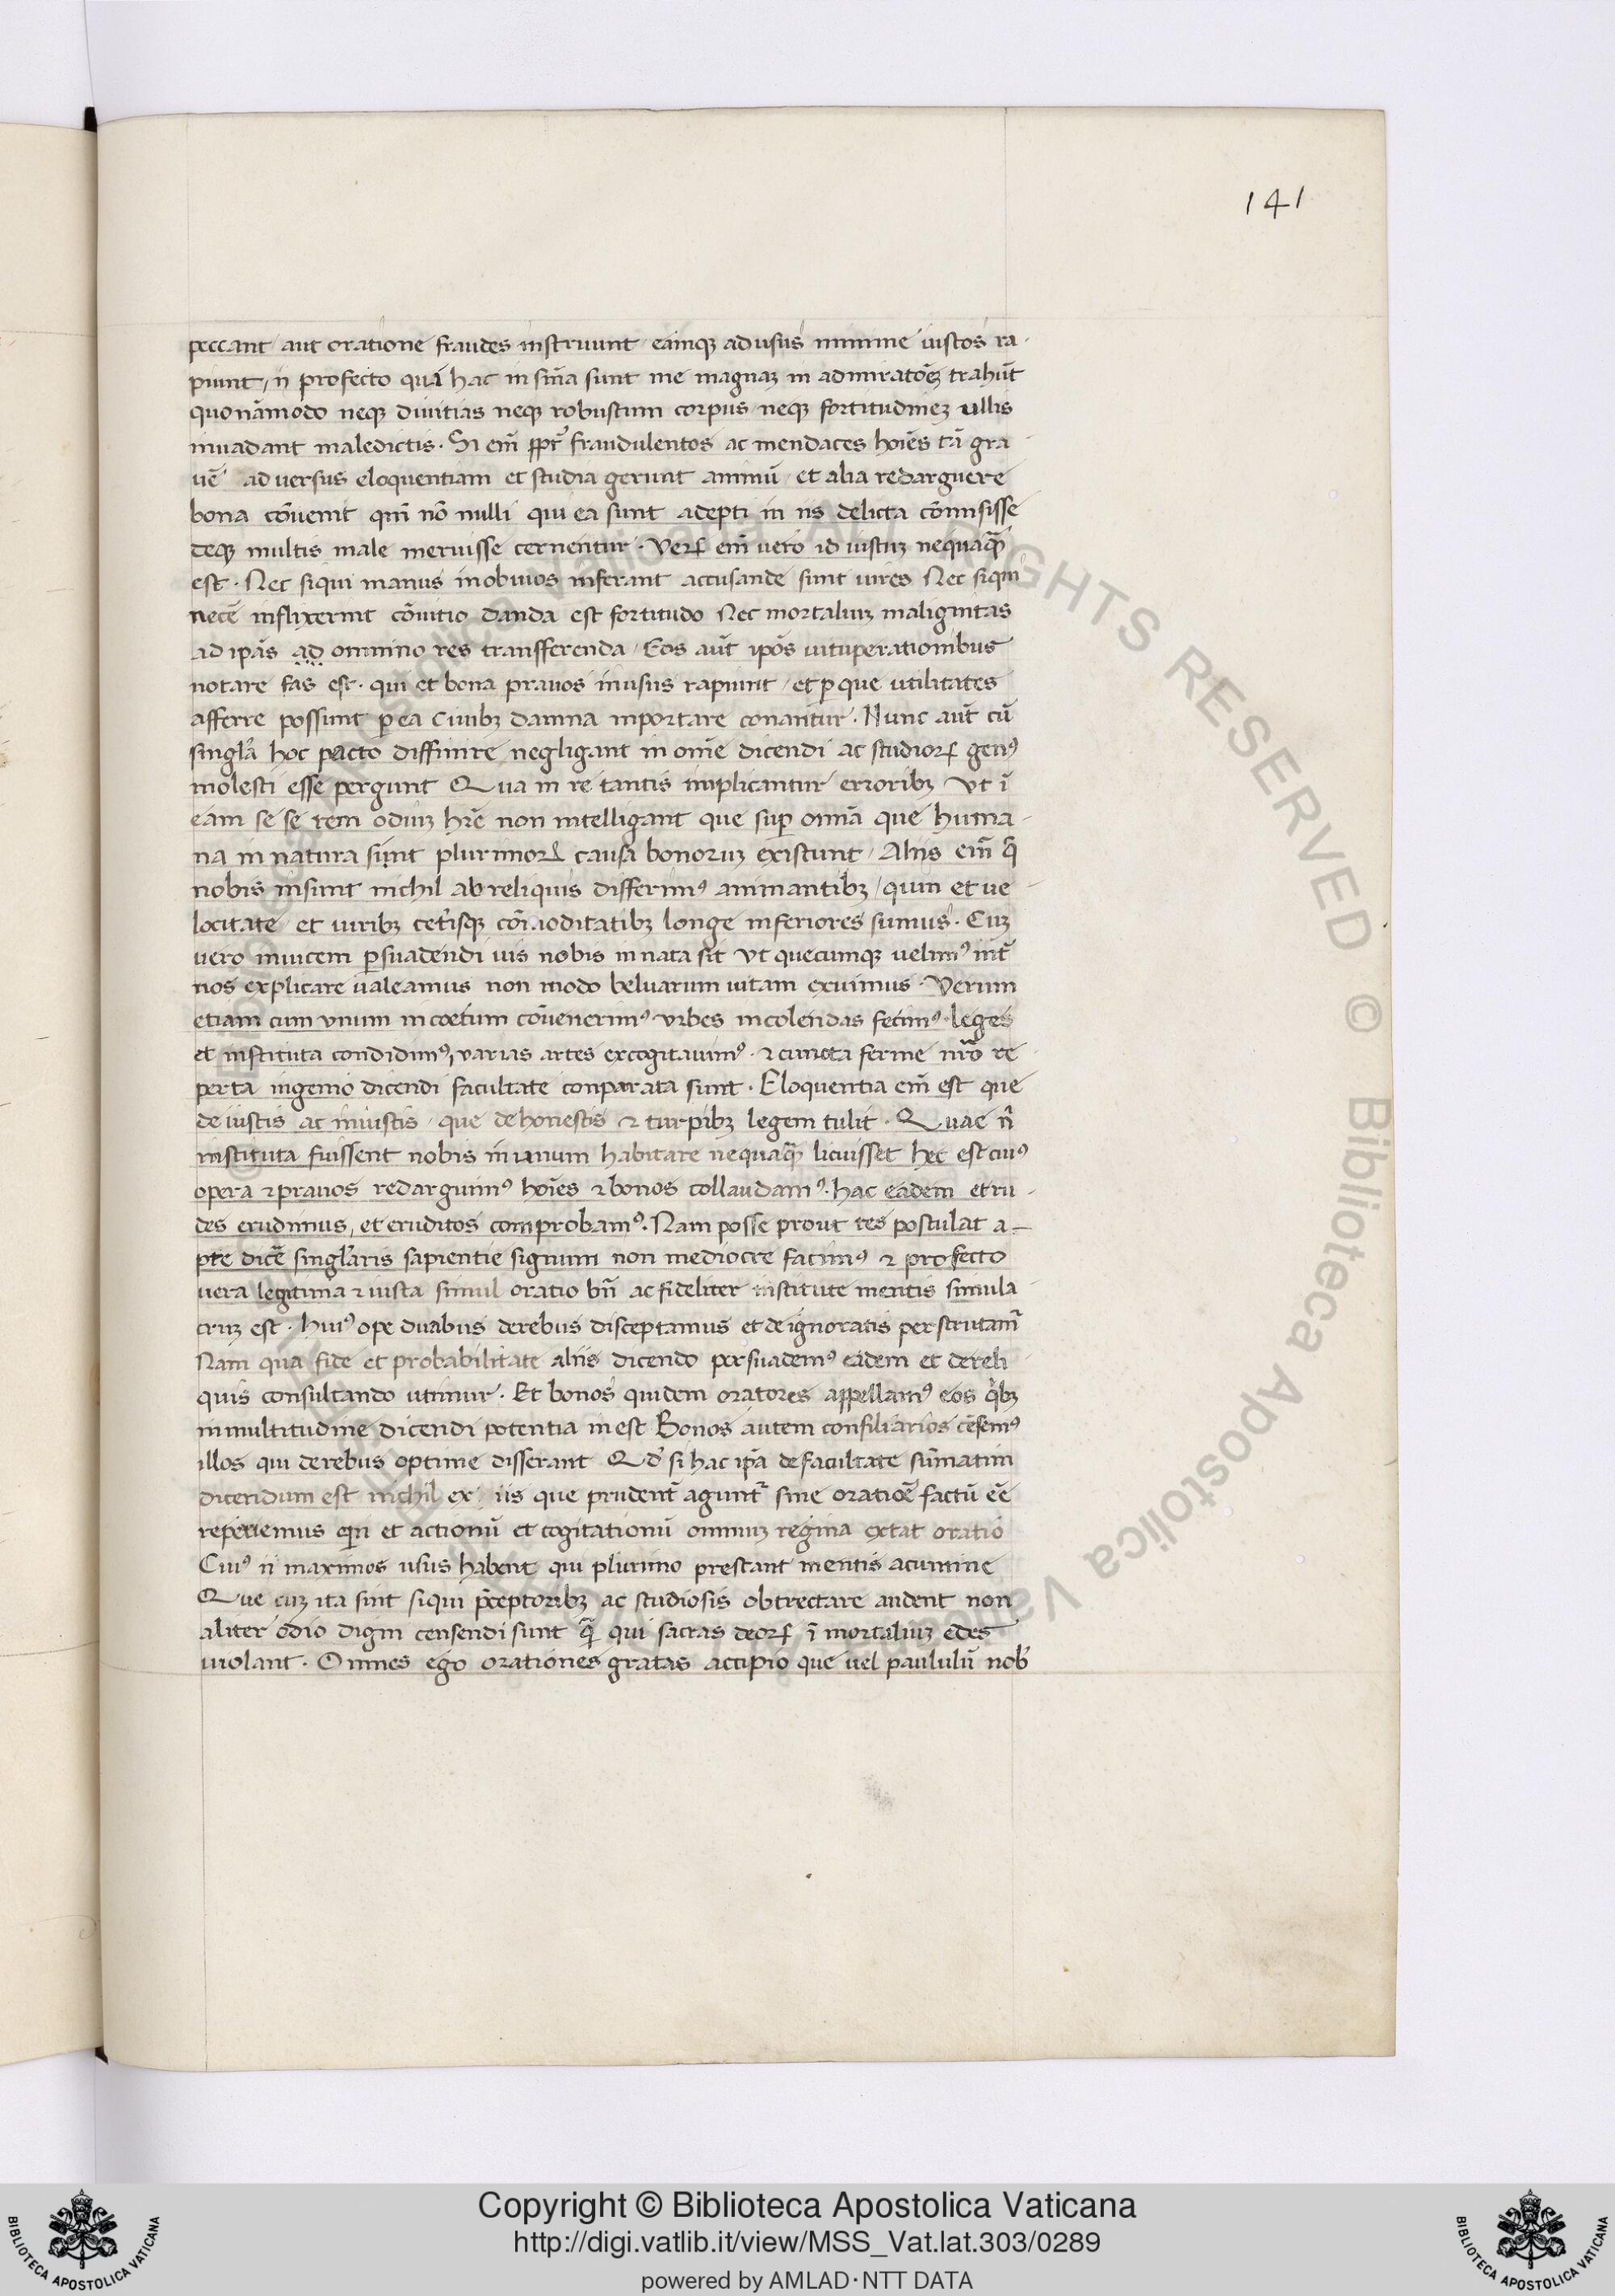 141
peccant aut oratione fraudes instruunt eamq; ad usus minime iustos ra-
piunt, n̄ profecto quā hac in sn̄ia sunt me magnaz in admiratōez trahūt
quonāmodo neq; divitias neq; robustum corpus neq; fortitudinez ullis
invadant maledictis. Si em̄ ꝓpt̄ fraudulentos ac mendaces hoīes tā gra-
uē adversus eloquentiam et studia gerunt animū et alia redarguere
bona cōuenit qm̄ nō nulli qui ea sunt adepti in iis delicta cōmisisse
deq; multis male meruisse cernentur. Veꝝ em̄ vero id iustuz nequaq̄
est. Nec siqui manus in obuios inferant accusande sunt uires Nec siqui
necē inflixerint cōuitio danda est fortitudo Nec mortaliuz malignitas
ad ipās ad omnino res transfferenda. Eos aūt ipōs uituperationibus
notare fas est. qui et bona prauos in usus rapiunt, et ꝑ que utilitates
afferre possunt ꝑ ea ciuibz damna inportare conantur. Nunc aūt cū
singl'a hoc pacto diffinire negligant in om̄e dicendi ac studioꝝ gen9
molesti esse pergunt Qua in re tantis implicantur erroribz Vt ī
eam se se rem odiuz hr̄e non intelligant que suꝑ omīa que huma-
na in natura sunt plurimoꝝ causa bonoruz existunt. Aliis em̄ q̄
nobis insunt nichil ab reliquis differim9 animantibz, quin et ve-
locitate et uiribz cet'isq; cōmoditatibz longe inferiores sumus. Cuz
uero inuicem ꝑsuadendi uis nobis innata sit Vt quecumq; uelim9 int̄
nos explicare ualeamus non modo beluarum uitam exuimus. Verum
etiam cum unum in coetum cōuenerim9 urbes incolendas fecim9. leges
et instituta condidim9, varias artes excogitauim9. ⁊ cuncta ferme nr̄o re-
perta ingenio dicendi facultate conparata sunt. Eloquentia em̄ est que
de iustis ac iniustis, que de honestis ⁊ turpibz legem tulit. Quae n̄
instituta fuissent nobis in unum habitare nequaq̄ licuisset hec est cui9
opera ⁊ prauos redarguim9 hoīes ⁊ bonos collaudam9. hac eadem et ru-
des erudimus, et eruditos comprobam9. Nam posse prout res postulat a-
pte dicē singl'aris sapientie signum non mediocre facim9 ⁊ profecto
uera legitima ⁊ iusta simul oratio bn̄ ac fideliter institute mentis simula
cruz est. Hui9 ope duabus de rebus disceptamus et de ignoratis perscrutam̄
Nam qua fide et probabilitate aliis dicendo persuadem9 eadem et de reli
quis consultando utimur. Et bonos quidem oratores appellam9 eos q'bz
in multitudine dicendi potentia inest Bonos autem consiliarios cēsem9
illos qui de rebus optime disserant Qd' si hac ipā de facultate sūmatim
dicendum est nichil ex iis que prudent̄ agunt̄ sine oratiōe factū eē
reperiemus quin et actionū et cogitationū omniuz regina extat oratio
Cui9 n̄ maximos usus habent qui plurimo prestant mentis acumine
Que cuz ita sint siqui p̄ceptoribz ac studiosis obtrectare audent non
aliter odio digni censendi sunt q̄ qui sacras deoꝝ īmortaliuz edes
uiolant. Omnes ego orationes gratas accipio que uel paululū nob'
Copyright © Biblioteca Apostolica Vaticana
http://digi.vatlib.it/view/MSS_Vat.lat.303/0289
powered by AMLAD·NTT DATA